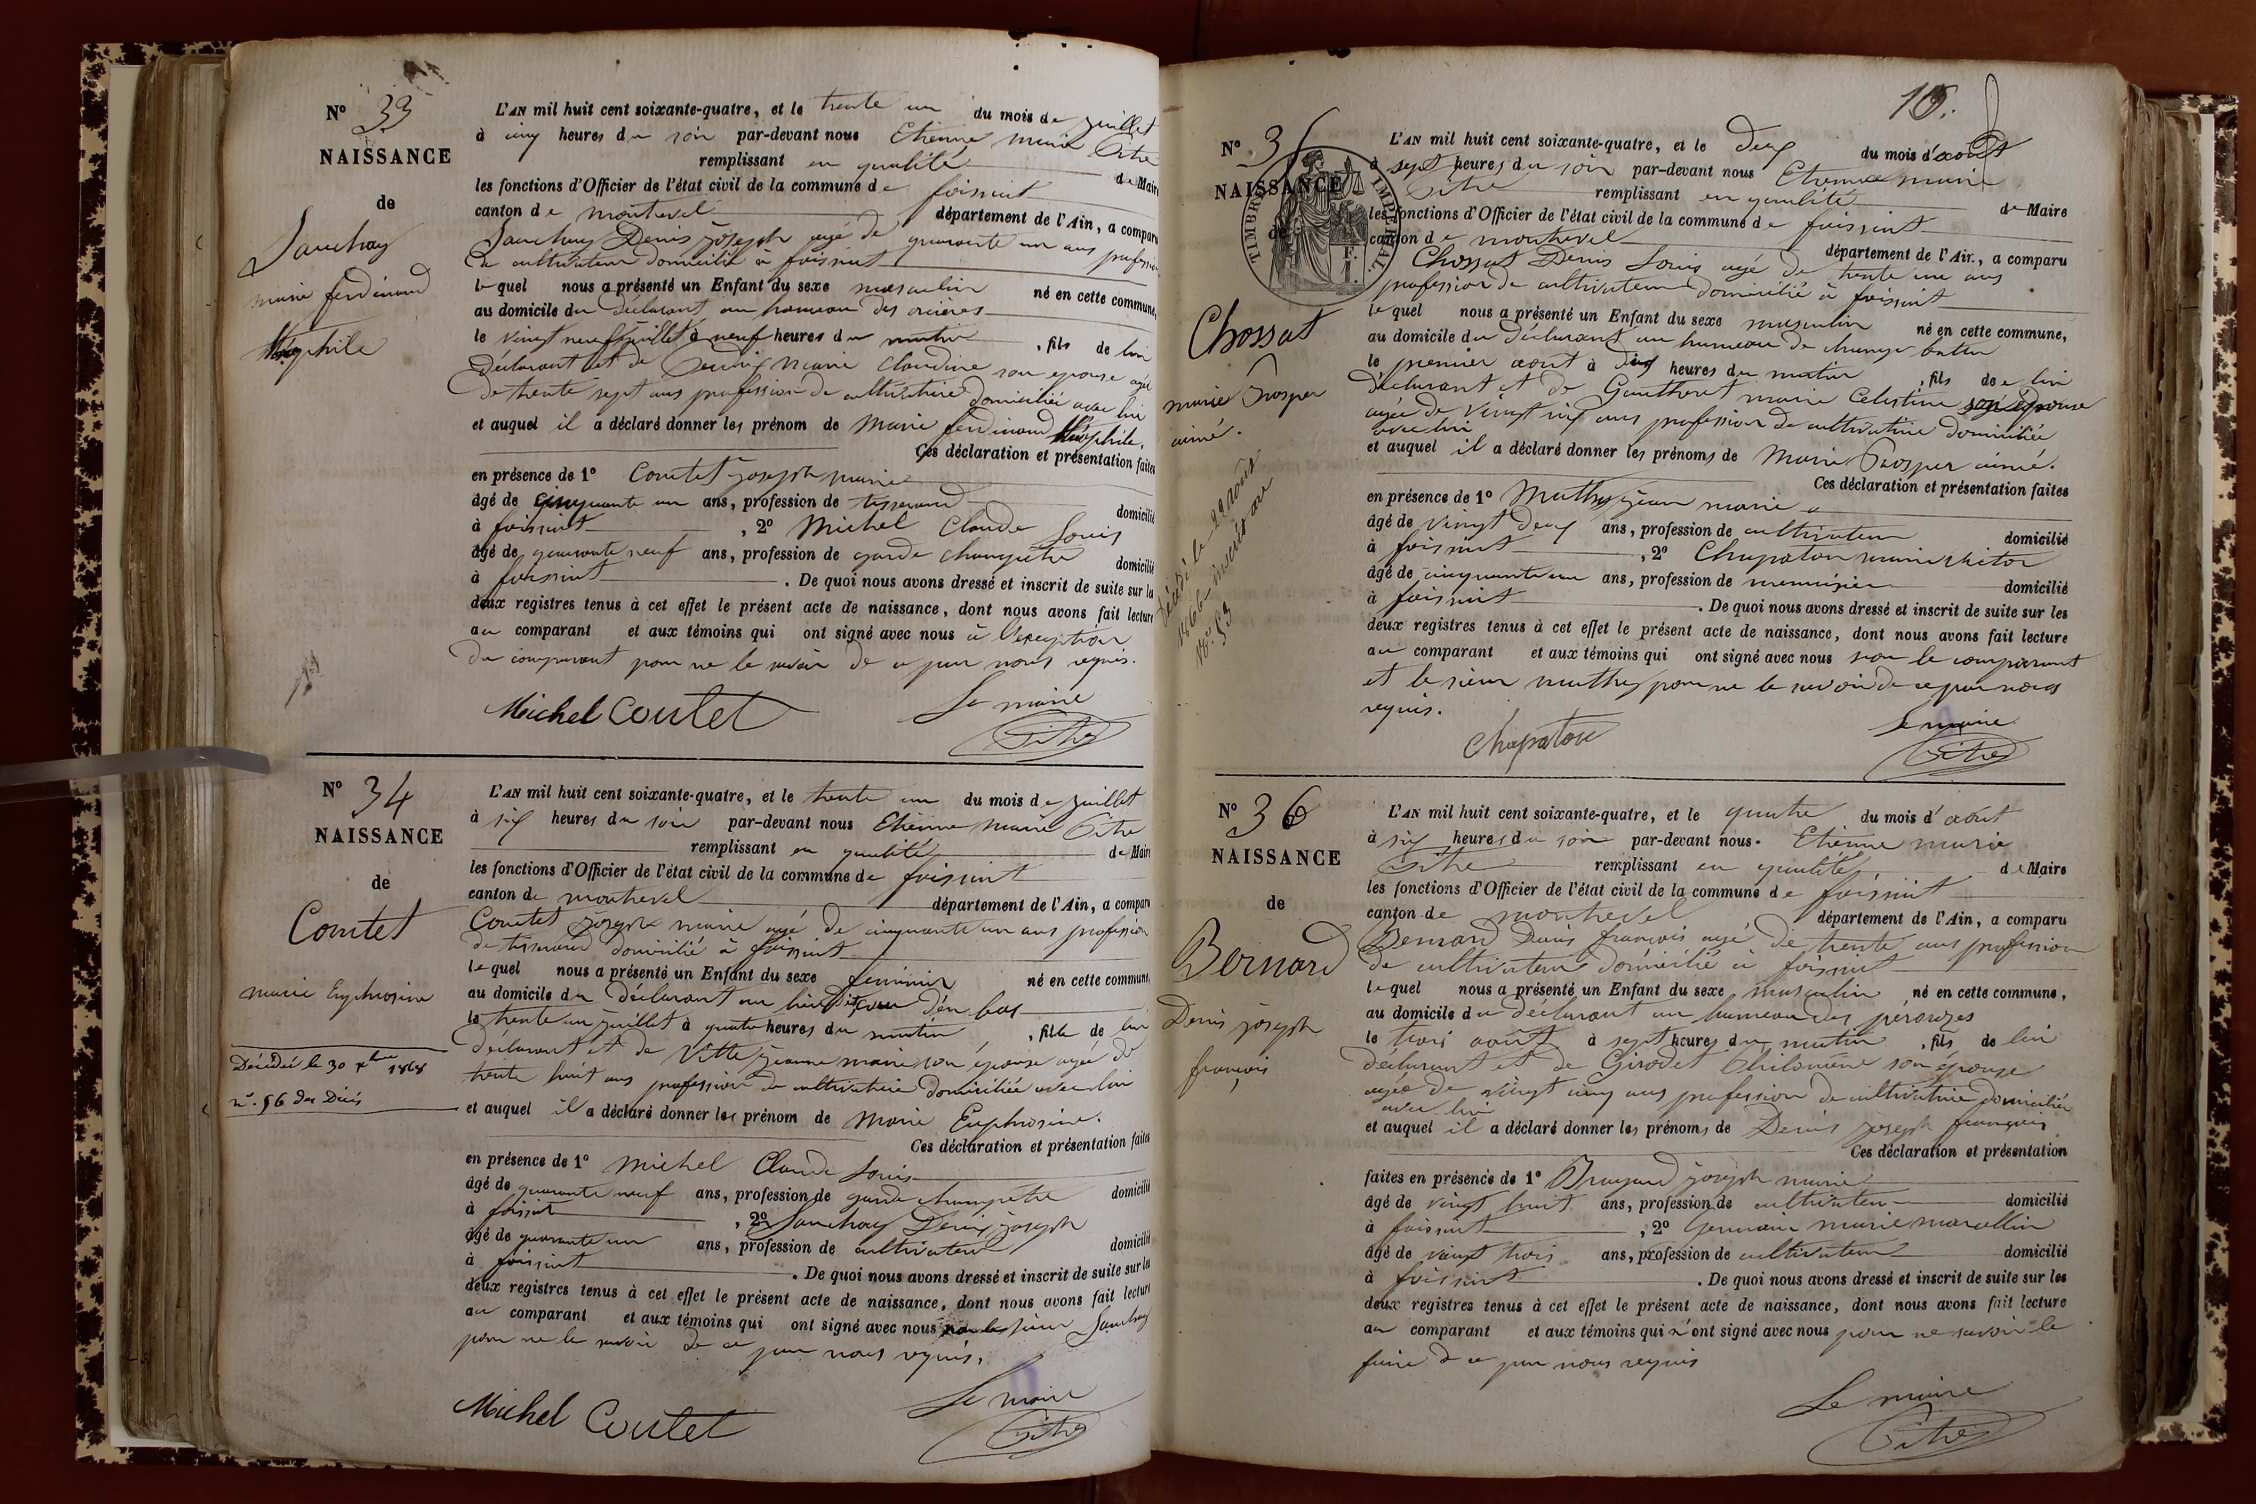 N° 33
NAISSANCE
de
Sauchay
marie ferdinand
théophile
L'AN mil huit cent soixante-quatre, et le trente un du mois de juillet
à cinq heures du soir par-devant nous Etienne marie Pitre
remplissant en qualité de Maire
les fonctions d'Officier de l'état civil de la commune de foissiat
canton de montrevel département de l'Ain, a comparu
Sauchay Denis joseph agé de quarante un ans profession
de cultivateur domicilié à foissiat
lequel nous a présenté un Enfant du sexe masculin né en cette commune,
au domicile du déclarant au hameau des
le vingt neuf juillet à neuf heures du matin, fils de lui
déclarant et de marie claudine son épouse agée
de trente sept ans profession de cultivatrice domiciliée avec lui
et auquel il a déclaré donner les prénom de marie ferdinand théophile.
Ces déclaration et présentation faites
en présence de 1° Comtet joseph marie
âgé de cinquante un ans, profession de tisserand domicilié
à foissiat, 2° Michel Claude Louis
âgé de quarante neuf ans, profession de garde champêtre domicilié
à foissiat. De quoi nous avons dressé et inscrit de suite sur les
deux registres tenus à cet effet le présent acte de naissance, dont nous avons fait lecture
au comparant et aux témoins qui ont signé avec nous à l'exception
du comparant pour ne le savoir de ce par nous requis.
Michel Comtet Le maire
Pitre
N° 34
NAISSANCE
de
Comtet
marie Euphrosine
Décédée le 30 Xbre 1868
n°. 56 des Décès
L'AN mil huit cent soixante-quatre, et le trente un du mois de juillet
à six heures du soir par-devant nous Etienne marie Pitre
remplissant en qualité de Maire
les fonctions d'Officier de l'état civil de la commune de foissiat
canton de montrevel département de l'Ain, a comparu
Comtet joseph marie agé de cinquante un ans profession
de tisserand domicilié à foissiat
lequel nous a présenté un Enfant du sexe féminin né en cette commune,
au domicile du déclarant au lieu d'en bas
le trente un juillet à quatre heures du matin, fille de lui
déclarant et de Vitte jeanne marie son épouse agée de
trente huit ans profession de cultivatrice domiciliée avec lui
et auquel il a déclaré donner les prénom de marie Euphrosine.
Ces déclaration et présentation faites
en présence de 1° michel Claude Louis
âgé de quarante neuf ans, profession de garde champêtre domicilié
à foissiat, 2° Sauchay Denis joseph
âgé de quarante un ans, profession de cultivateur domicilié
à foissiat. De quoi nous avons dressé et inscrit de suite sur les
deux registres tenus à cet effet le présent acte de naissance, dont nous avons fait lecture
au comparant et aux témoins qui ont signé avec nous non le sieur Sauchay
pour ne le savoir de ce par nous requis.
Michel Comtet Le maire
Pitre
N° 35
NAISSANCE
de
TIMBRE IMPERIAL.
Chossat
marie Prosper
aimé.
Décédé le 22 août
1866 inscrit au
N° 53
L'AN mil huit cent soixante-quatre, et le deux du mois d'août
à sept heures du soir par-devant nous Etienne marie
Pitre remplissant en qualité de Maire
les fonctions d'Officier de l'état civil de la commune de foissiat
canton de montrevel département de l'Ain, a comparu
Chossat Denis Louis agé de trente un ans
profession de cultivateur domicilié à foissiat
lequel nous a présenté un Enfant du sexe masculin né en cette commune,
au domicile du déclarant au hameau de
le premier août à dix heures du matin, fils de lui
déclarant et de Gautheret marie Celestine son épouse
agée de vingt six ans profession de cultivatrice domiciliée
avec lui
et auquel il a déclaré donner les prénoms de Marie Prosper aimé.
Ces déclaration et présentation faites
en présence de 1° Mathy jean marie
âgé de vingt deux ans, profession de cultivateur domicilié
à foissiat, 2° Chapaton marie victor
âgé de cinquante un ans, profession de menuisier domicilié
à foissiat. De quoi nous avons dressé et inscrit de suite sur les
deux registres tenus à cet effet le présent acte de naissance, dont nous avons fait lecture
au comparant et aux témoins qui ont signé avec nous non le comparant
et le sieur mathy pour ne le savoir de ce par nous
requis.
Chapaton Le maire
Pitre
N° 36
NAISSANCE
de
Bernard
Denis joseph
françois
L'AN mil huit cent soixante-quatre, et le quatre du mois d'août
à six heures du soir par-devant nous Etienne marie
Pitre remplissant en qualité de Maire
les fonctions d'Officier de l'état civil de la commune de foissiat
canton de montrevel département de l'Ain, a comparu
Bernard Denis françois agé de trente ans profession
de cultivateur domicilié à foissiat
lequel nous a présenté un Enfant du sexe masculin né en cette commune,
au domicile du déclarant au hameau des perouzes
le trois août à sept heures du matin, fils de lui
déclarant et de Girodet Philomène son épouse
agée de vingt cinq ans profession de cultivatrice domiciliée
avec lui
et auquel il a déclaré donner les prénoms de Denis joseph françois
Ces déclaration et présentation
faites en présence de 1° joseph marie
âgé de vingt huit ans, profession de cultivateur domicilié
à foissiat, 2° Germain marie marcellin
âgé de vingt trois ans, profession de cultivateur domicilié
à foissiat. De quoi nous avons dressé et inscrit de suite sur les
deux registres tenus à cet effet le présent acte de naissance, dont nous avons fait lecture
au comparant et aux témoins qui n'ont signé avec nous pour ne savoir le
faire de ce par nous requis
Le maire
Pitre